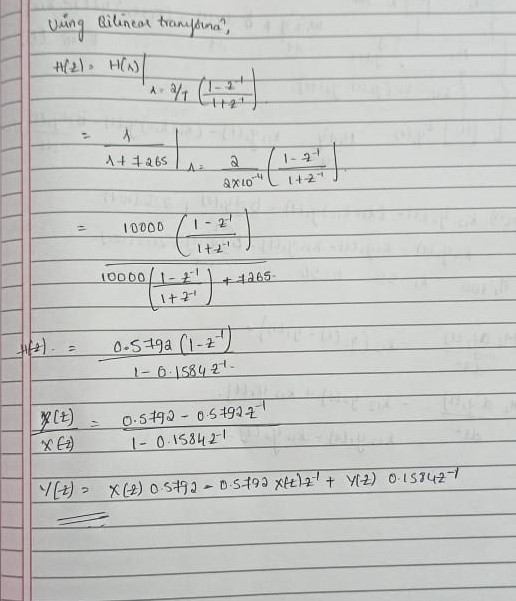 Using Bilinear transform,
H(z) = H(s) | s = 2/T ( (1 - z⁻¹) / (1 + z⁻¹) )
= s / (s + 7265) | s = 2 / (2×10⁻⁴) ( (1 - z⁻¹) / (1 + z⁻¹) )
= 10000 ( (1 - z⁻¹) / (1 + z⁻¹) ) / ( 10000 ( (1 - z⁻¹) / (1 + z⁻¹) ) + 7265 )
H(z) = 0.5792 (1 - z⁻¹) / (1 - 0.1584 z⁻¹)
Y(z) / X(z) = (0.5792 - 0.5792 z⁻¹) / (1 - 0.1584 z⁻¹)
Y(z) = X(z) 0.5792 - 0.5792 X(z) z⁻¹ + Y(z) 0.1584 z⁻¹